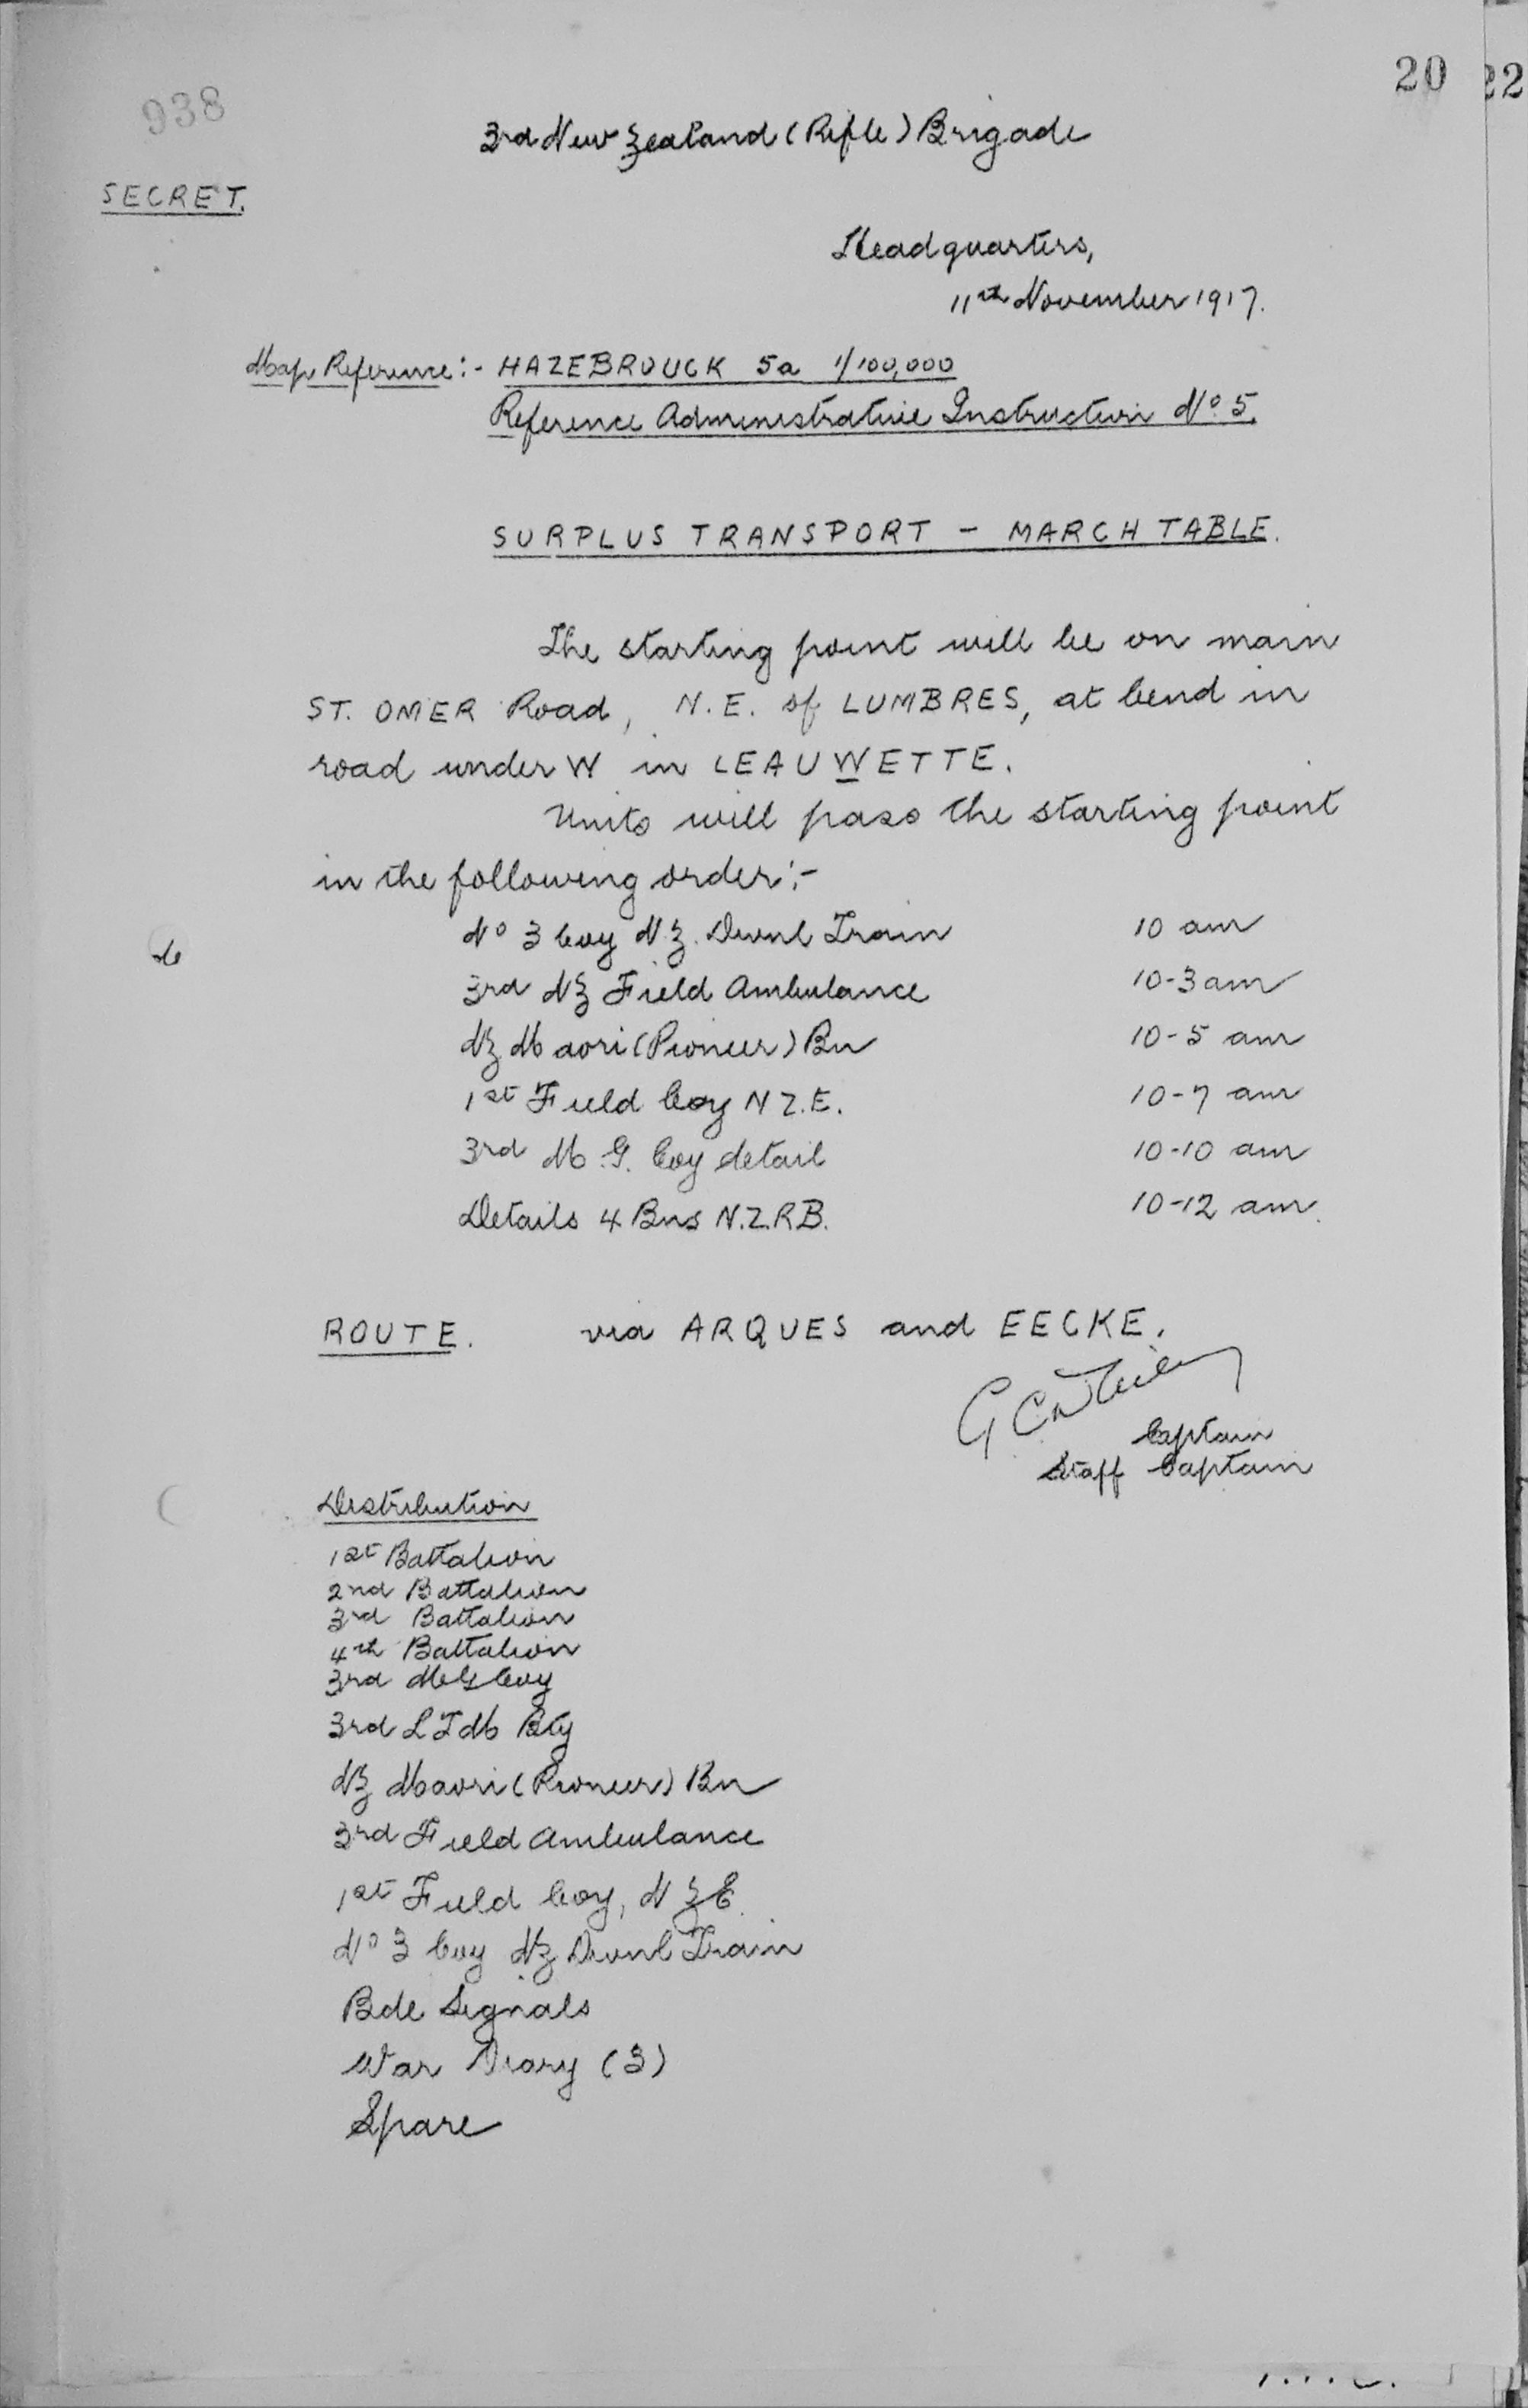 20
22
938
3rd New Zealand (Rifle) Brigade
SECRET.
Headquarters,
11th November 1917.
Map Reference:- HAZEBROUCK 5a 1/100,000
Reference Administrative Instruction No 5.
SURPLUS TRANSPORT - MARCH TABLE.
The starting point will be on main
ST. OMER Road, N.E. of LUMBRES, at bend in
road under W in LEAUWETTE.
Units will pass the starting point
in the following order:-
No 3 Coy N.Z. Divnl Train 10 am
3rd NZ Field Ambulance 10-3 am
NZ Maori (Pioneer) Bn 10-5 am
1st Field Coy N.Z.E. 10-7 am
3rd M.G. Coy detail 10-10 am
Details 4 Bns N.Z.R.B. 10-12 am.
ROUTE. via ARQUES and EECKE.
Captain
Staff Captain
Distribution
1st Battalion
2nd Battalion
3rd Battalion
4th Battalion
3rd MG Coy
3rd LTM Bty
NZ Maori (Pioneer) Bn
3rd Field Ambulance
1st Field Coy, NZE.
No 3 Coy NZ Divnl Train
Bde Signals
War Diary (3)
Spare